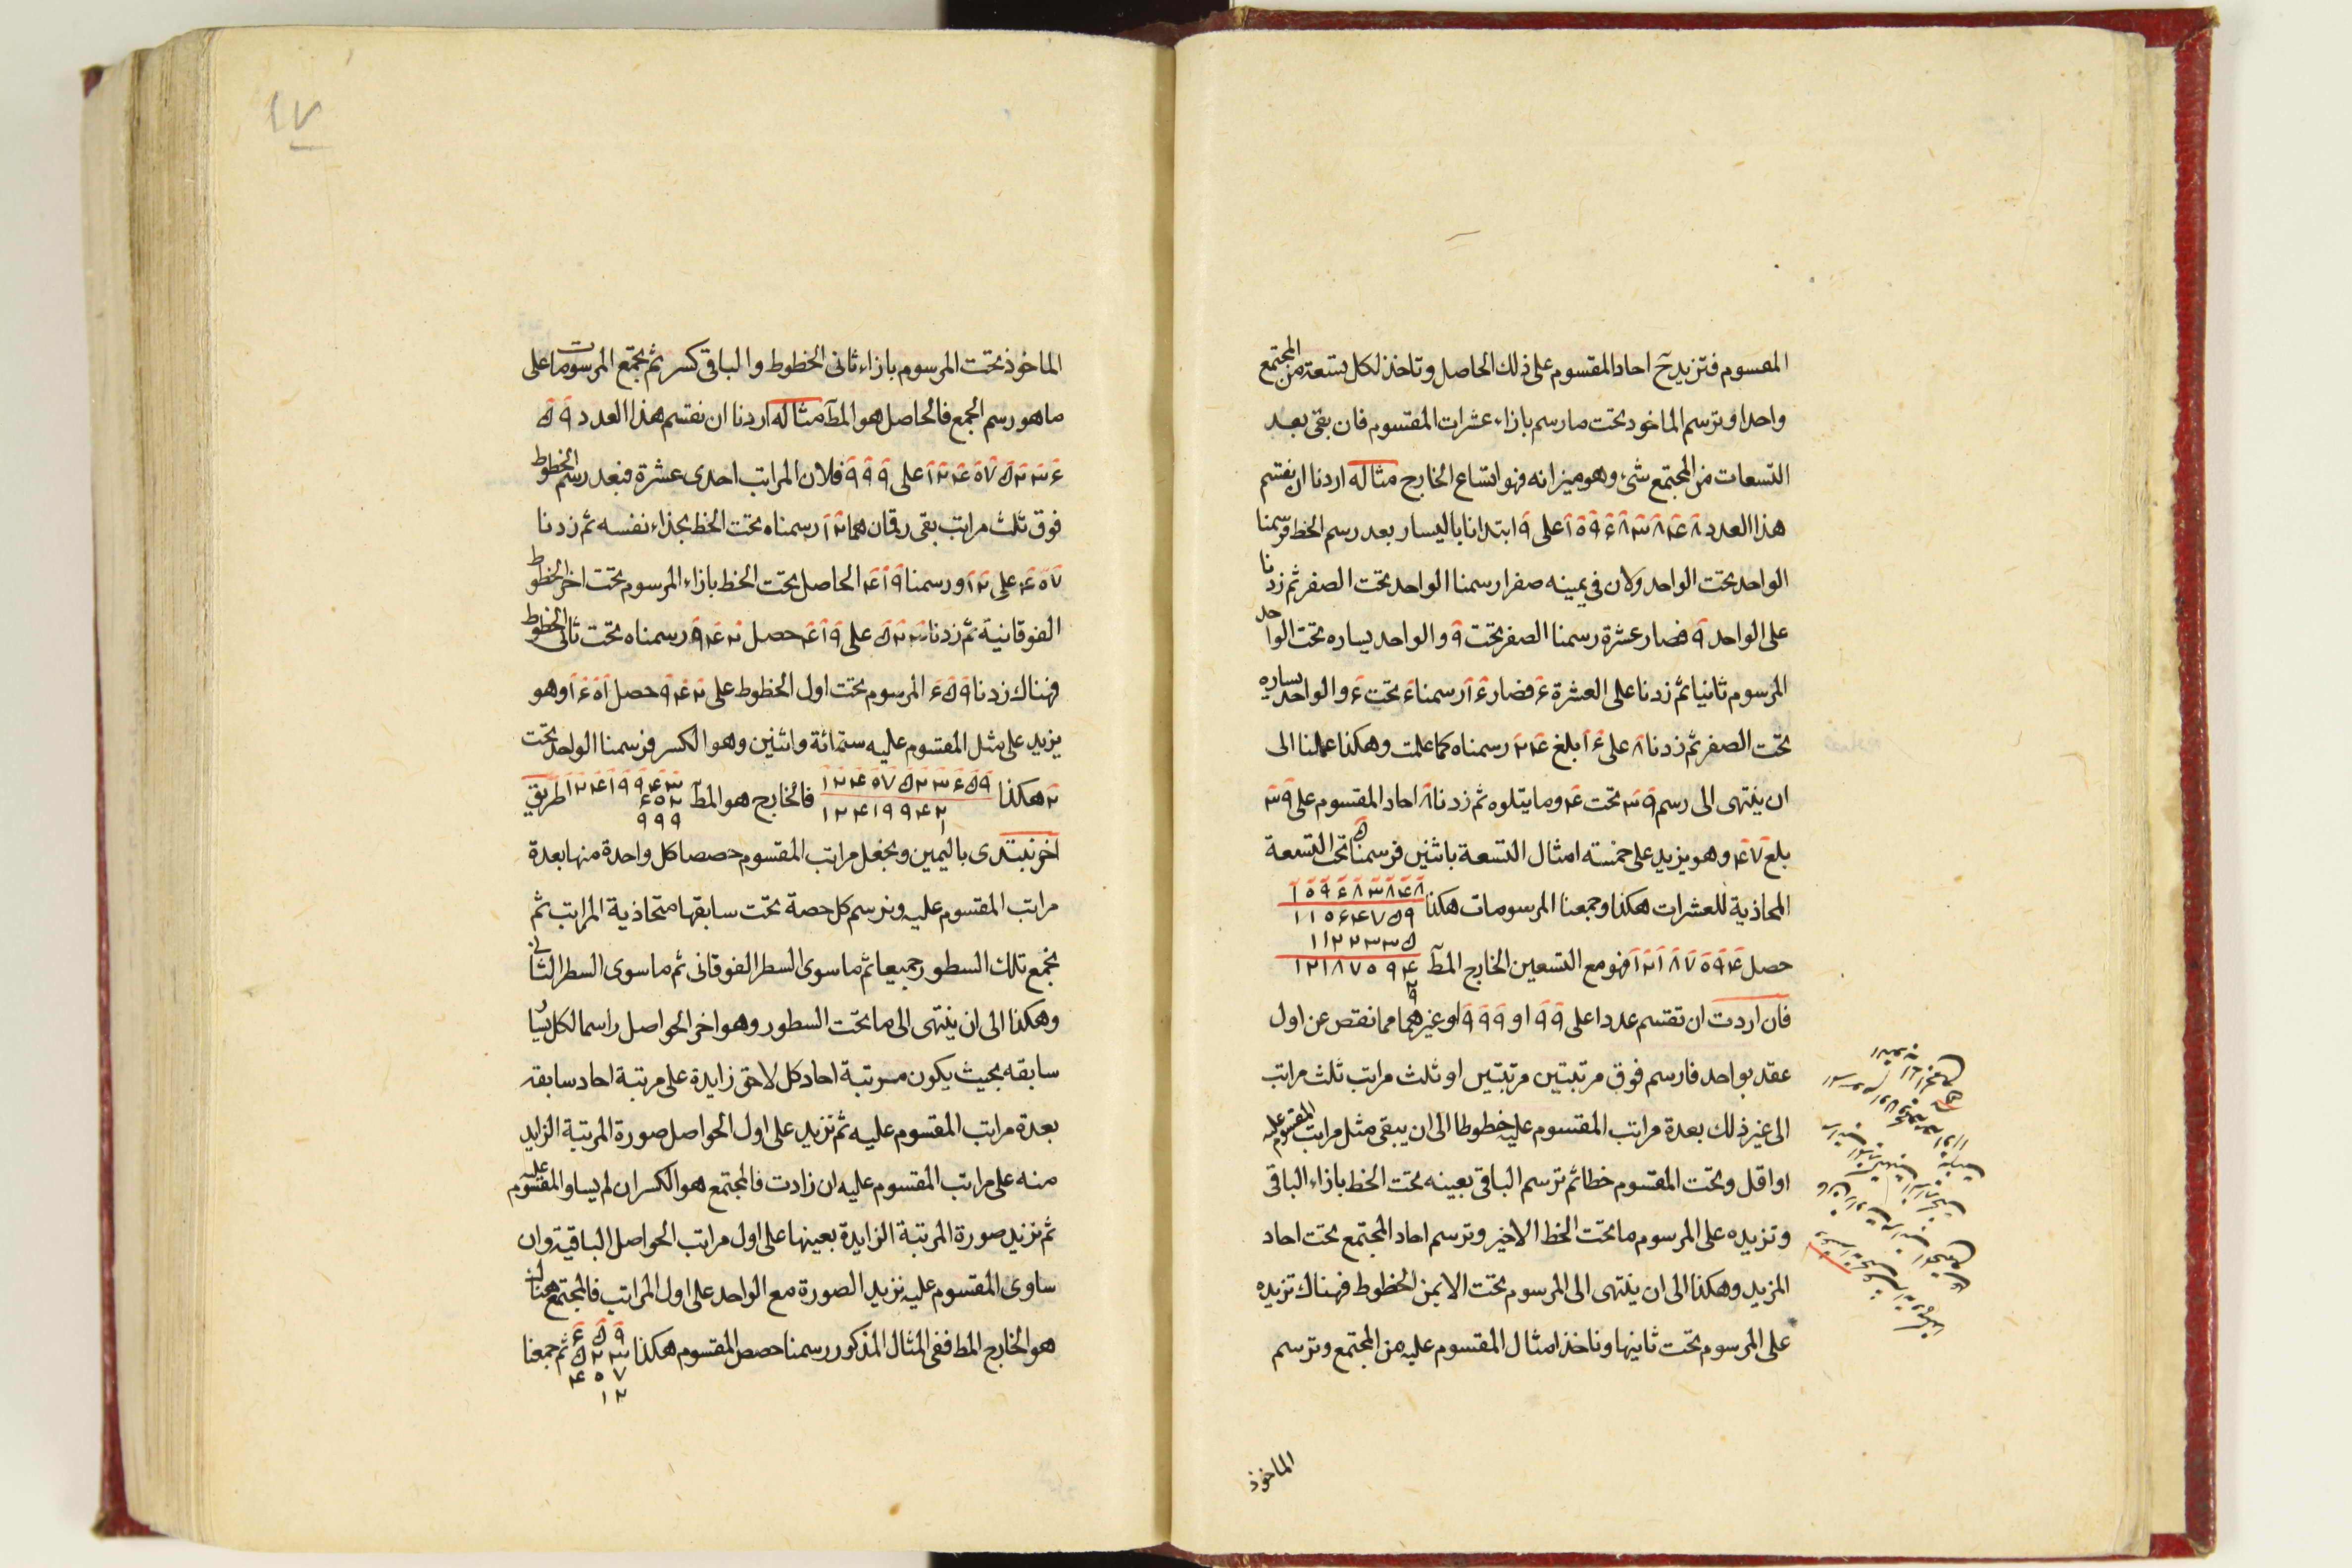 المقسوم فتزيد ح احاد المقسوم على ذلك الحاصل وتاخذ لكل تسعة من المجتمع
واحدا وترسم الماخوذ تحت ما رسم بازاء عشرات المقسوم فان بقى بعد
التسعات من المجتمع شىء وهو ميزانه فهو اتساع الخارج مثاله اردنا ان نقسم
هذا العدد ١٠٩٦٨٣٨٤٨ على ٩ ابتدانا باليسار بعد رسم الخط فرسمنا
الواحد تحت الواحد ولان فى يمينه صفرا رسمنا الواحد تحت الصفر ثم زدنا
على الواحد ٩ فصار عشرة رسمنا الصفر تحت ٩ والواحد يساره تحت الواحد
المرسوم ثانيا ثم زدنا على العشرة ٦ فصار ١٦ رسمنا ٦ تحت ٦ والواحد يساره
تحت الصفر ثم زدنا ٨ على ١٦ بلغ ٢٤ رسمناه كما علمت وهكذا عملنا الى
ان ينتهى الى رسم ٣٩ تحت ٤ وما يتلوه ثم زدنا ٨ احاد المقسوم على ٣٩
بلغ ٤٧ وهو يزيد على خمسة امثال التسعة باثنين فرسمنا ٥ تحت التسعة
المحاذية للعشرات هكذا وجمعنا المرسومات هكذا ١٠٩٦٨٣٨٤٨
١١٠٦٤٧٥٩
١١٢٢٣٣٥
حصل ١٢١٨٧٠٩٤ فهو مع التسعين الخارج المط ١٢١٨٧٠٩٤
٢
٩
فان اردت ان تقسم عددا على ٩٩ او ٩٩٩ او غيرهما مما نقص عن اول
عقد بواحد فارسم فوق مرتبتين مرتبتين او ثلث مراتب ثلث مراتب
الى غير ذلك بعدة مراتب المقسوم عليه خطوطا الى ان يبقى مثل مراتب المقسوم عليه
او اقل وتحت المقسوم خطا ثم ترسم الباقى بعينه تحت الخط بازاء الباقى
وتزيده على المرسوم ما تحت الخط الاخير وترسم احاد المجتمع تحت احاد
المزيد وهكذا الى ان ينتهى الى المرسوم تحت الايمن الخطوط فهناك تزيده
على المرسوم تحت ثانيها وناخذ امثال المقسوم عليه من المجتمع وترسم
الماخوذ
١٧
الماخوذ تحت المرسوم بازاء ثانى الخطوط والباقى كسر ثم تجمع المرسومات على
ما هو رسم الجمع فالحاصل هو المط مثاله اردنا ان نقسم هذا العدد ٥٩
١٢٤٠٧٥٢٣٦ على ٩٩٩ فلان المراتب احدى عشرة فبعد رسم الخطوط
فوق ثلث مراتب بقى رقمان هما ١٢ رسمناه تحت الخط بحذاء نفسه ثم زدنا
٤٠٧ على ١٢ ورسمنا ٤١٩ الحاصل تحت الخط بازاء المرسوم تحت اخر الخطوط
الفوقانية ثم زدنا ٥٢٣ على ٤١٩ حصل ٩٤٢ رسمناه تحت ثانى الخطوط
فهناك زدنا ٦٥٩ المرسوم تحت اول الخطوط على ٩٤٢ حصل ١٦٠١ وهو
يزيد على مثل المقسوم عليه ستمائة واثنين وهو الكسر فرسمنا الواحد تحت
٢ هكذا ١٢٤٠٧٥٢٣٦٥٩ فالخارج هو المط ١٢٤١٩٩٤٣ طريق
١٢٤١٩٩٤٢ ٦٠٢
١ ٩٩٩
اخر نبتدى باليمين ونجعل مراتب المقسوم حصصا كل واحدة منها بعدة
مراتب المقسوم عليه ونرسم كل حصة تحت سابقها متحاذية المراتب ثم
نجمع تلك السطور جميعا ثم ما سوى السطر الفوقانى ثم ما سوى السطر الثانى
وهكذا الى ان ينتهى الى ما تحت السطور وهو اخر الحواصل راسما لكل يسار
سابقه بحيث يكون مرتبة احاد كل لاحق زايدة على مرتبة احاد سابقه
بعدة مراتب المقسوم عليه ثم نزيد على اول الحواصل صورة المرتبة الزايد
منه على مراتب المقسوم عليه ان زادت فالمجتمع هو الكسر ان لم يساو المقسوم عليه
ثم نزيد صورة المرتبة الزايدة بعينها على اول مراتب الحواصل الباقية وان
ساوى المقسوم عليه نزيد الصورة مع الواحد على اول المراتب فالمجتمع هناك
هو الخارج المط ففى المثال المذكور رسمنا حصص المقسوم هكذا ٦٥٩ ثم جمعنا
٥٢٣
٤٠٧
١٢